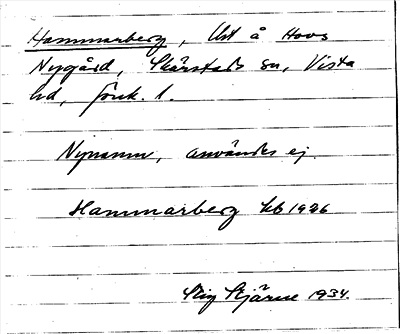 Hammarberg, Urt å Hovs
Nygård, Skärstads sn, Vista
hd, Jönk. l.
Nynamn, användes ej.
Hammarberg kb 1926
Stig Stjärne 1934.